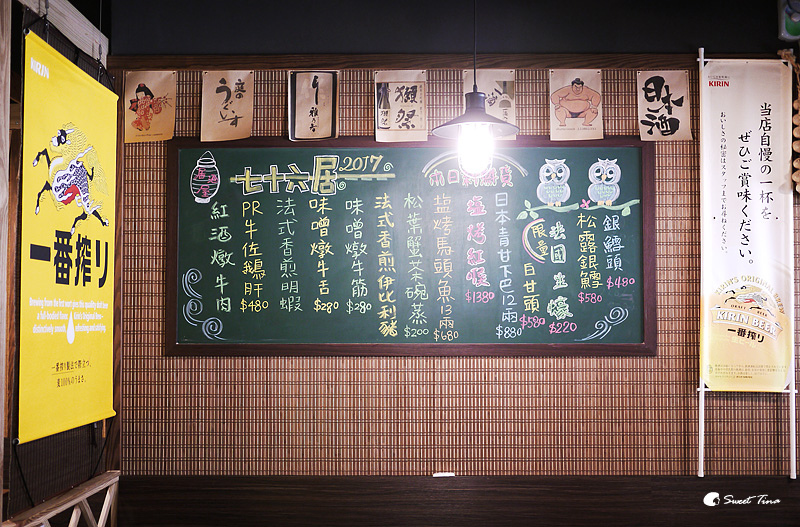 KIRIN
一番搾り
一番搾り製法で際立つ、
麦100%のうまさ。
獺祭
日本酒
七十六居 2017
居酒屋
銀鱈頭 $480
松露銀鱈 $580
法國生蠔 $220
限量
白甘頭 $580
日本青甘下巴12兩 $880
塩烤紅喉 $1380
塩烤馬頭魚13兩 $680
松葉蟹茶碗蒸 $200
法式香煎伊比利豬
味噌燉牛筋 $280
味噌燉牛舌 $280
法式香煎明蝦
PR牛佐鵝肝 $480
紅酒燉牛肉
KIRIN
当店自慢の一杯を
ぜひご賞味ください。
おいしさの秘密はスタッフまでお尋ねください。
KIRIN'S ORIGINAL BREW
KIRIN BEER
一番搾り
Sweet Tina